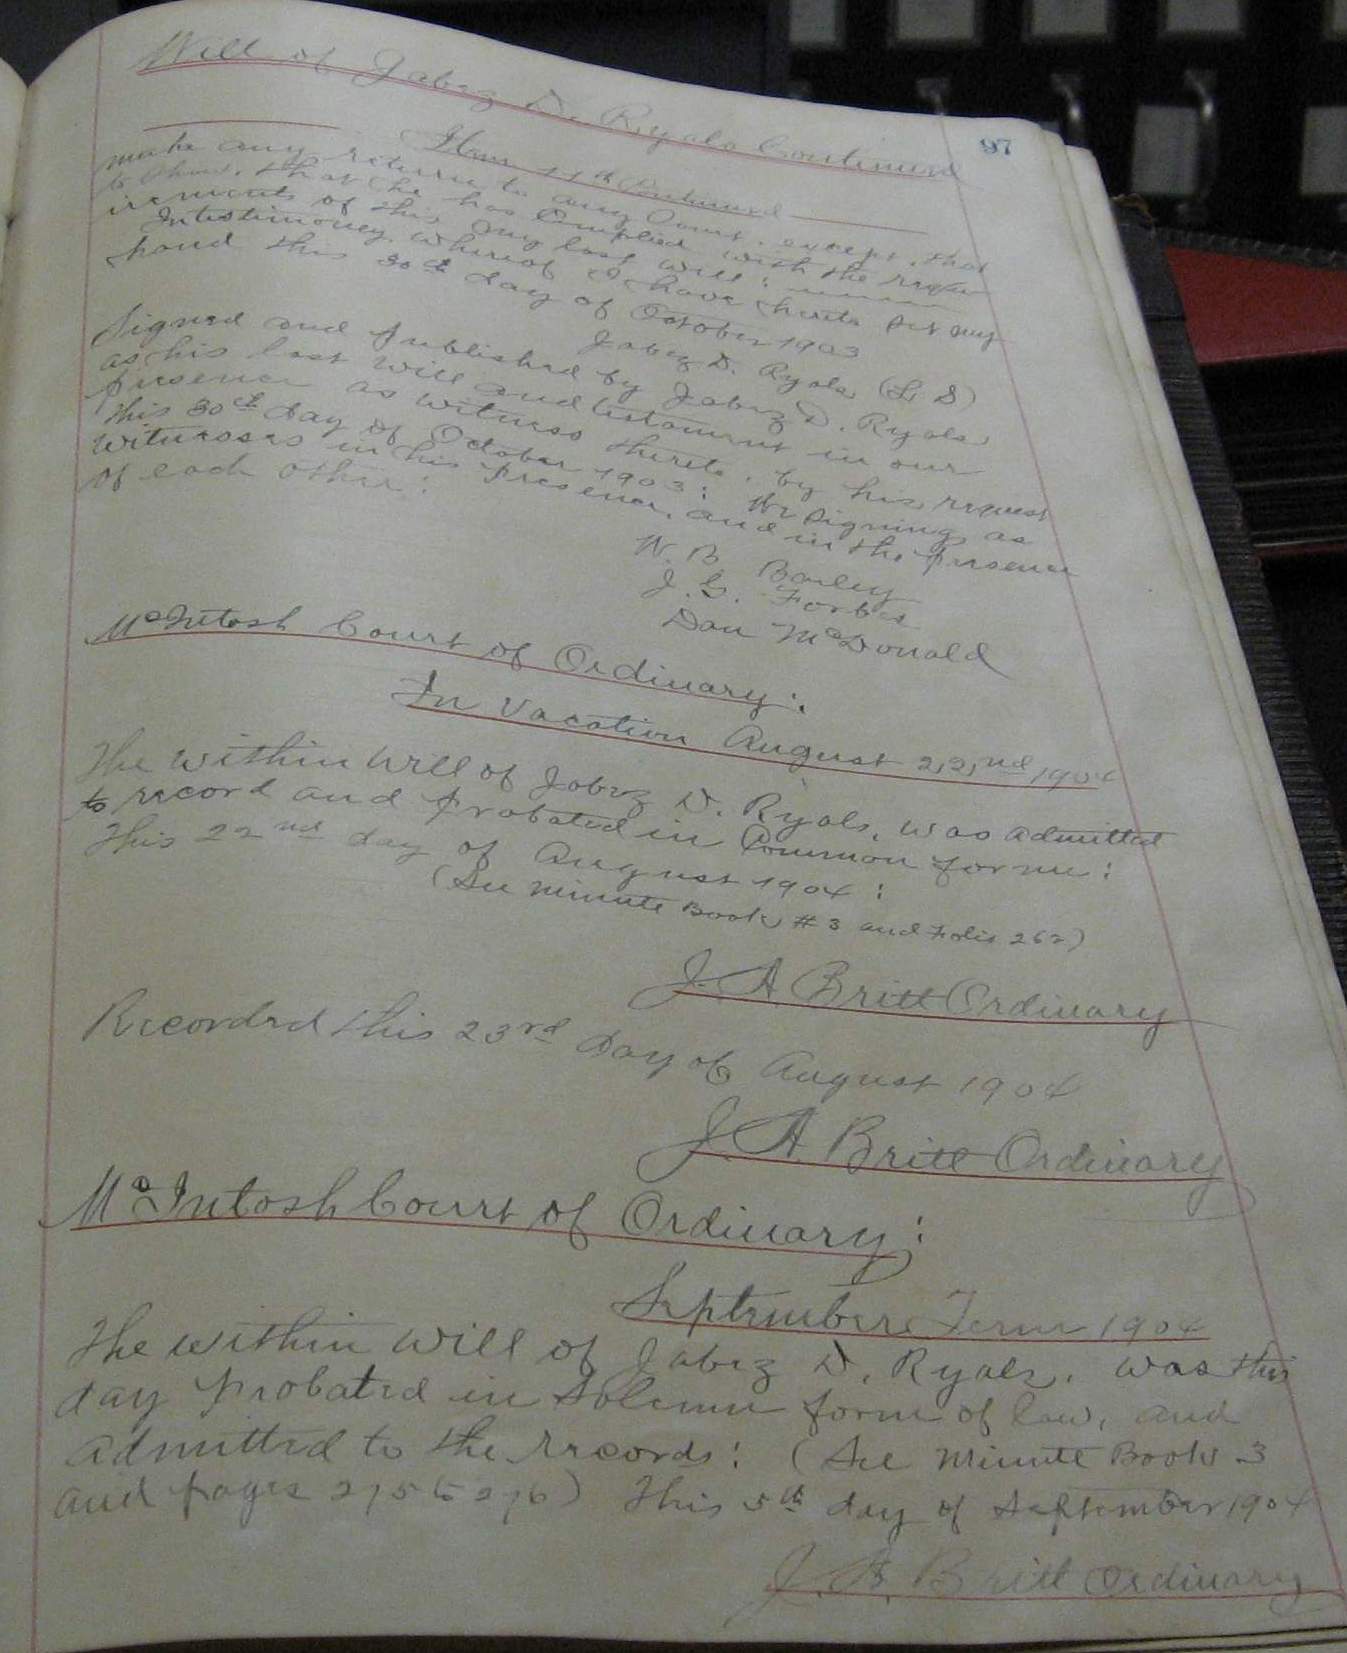 Will of Jabez D. Ryals Continued
97
Item 11th Continued
make any return to any Court, except, that
to show, that he has Complied with the requ
irements of this, my last will:
Intestimoney whereof I have hereto set my
hand this 30th day of October 1903
Jabez D. Ryals (L, S)
Signed and published by Jabez D. Ryals,
as his last will and testament in our
presence as witness thereto, by his, request
this 30th day of October 1903: We Signing as
witnesses in his presence, and in the presence
of each other:
W. B. Bailey
J. G. Forbes
Dan McDonald
McIntosh Court of Ordinary:
In Vacation August 22,nd, 1904
The within Will of Jabez D. Ryals, was admitted
to record and probated in Common forme:
This 22nd day of August 1904:
(See Minute Book, #3 and Folio 262)
J. A Britt Ordinary
Recorded this 23rd day of August 1904
J. A. Britt Ordinary
McIntosh Court of Ordinary:
September Term 1904
The within Will of Jabez D. Ryals, was this
day probated in Solemn form of law, and
admitted to the records: (See Minute Book 3
and pages 275 to 276) This 5th day of September 1904
J. A. Britt Ordinary